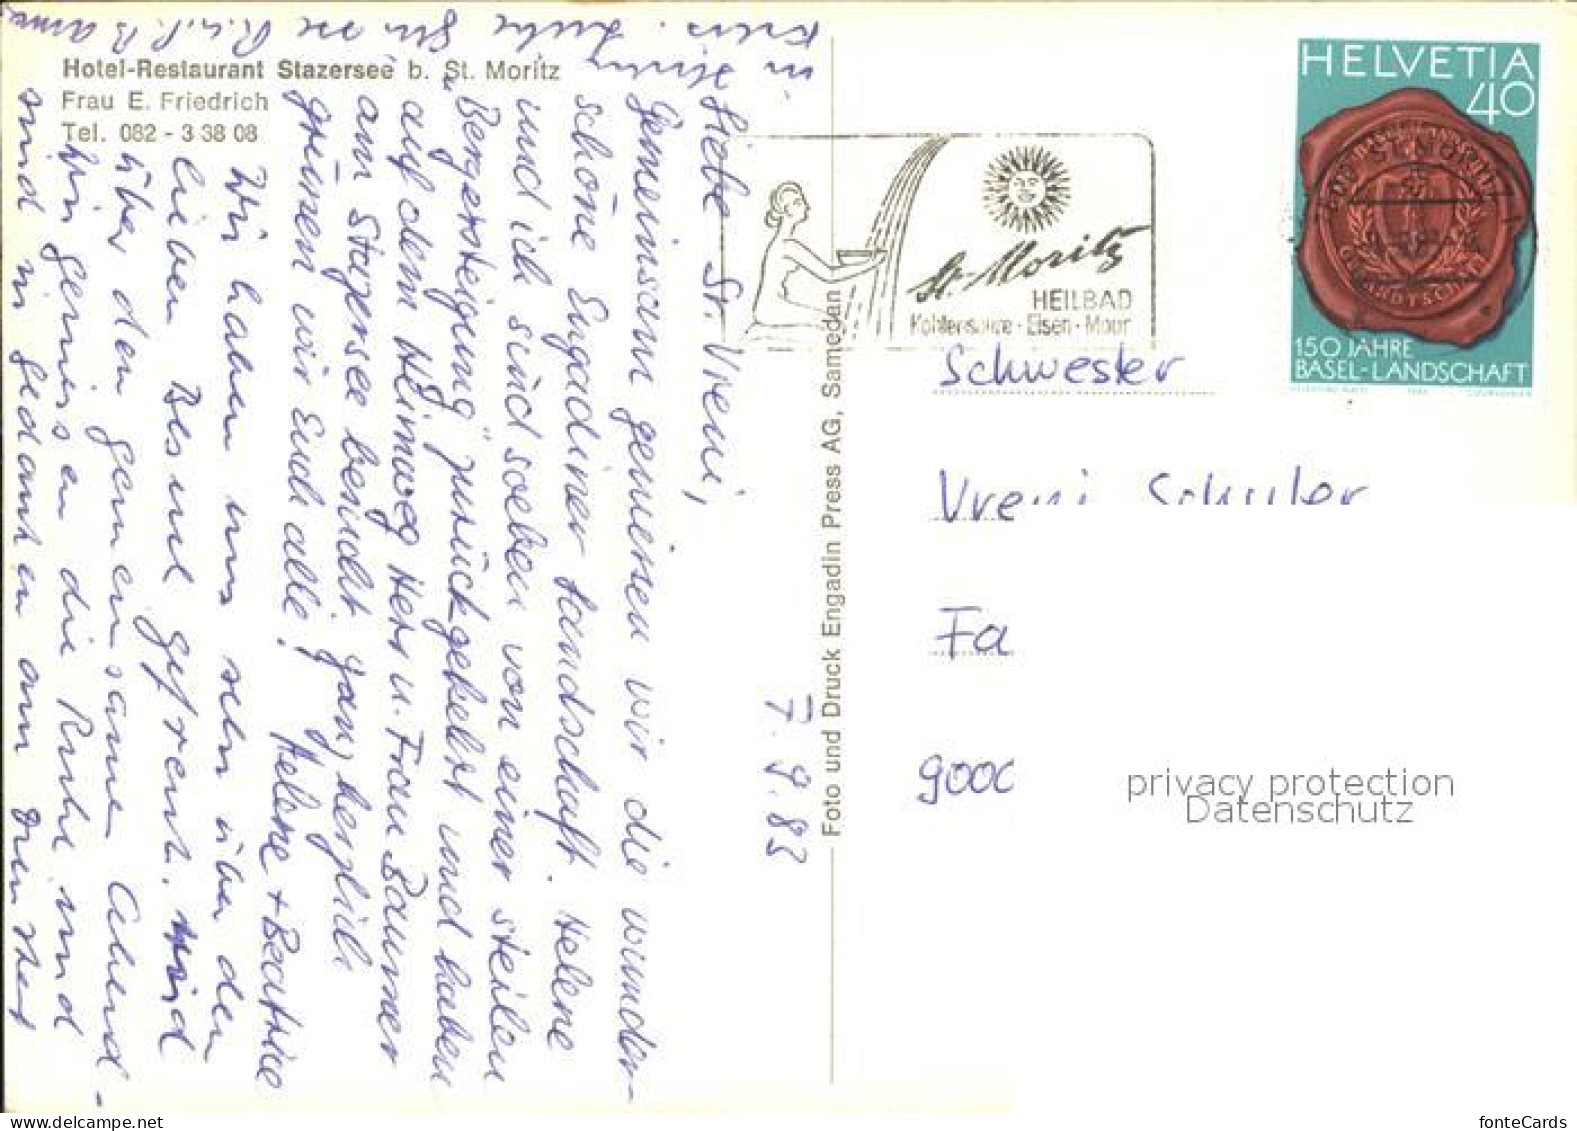 Hotel-Restaurant Stazersee b. St. Moritz
Frau E. Friedrich
Tel. 082 - 3 38 08
Liebe Sr. Vreni,
Gemeinsam geniessen wir die wunder-
schöne Engadiner Landschaft. Helene
und ich sind soeben von einer steilen
"Bergersteigung" zurückgekehrt und haben
auf dem Heimweg Herr u. Frau Banner
am Stazersee besucht. Ganz herzlich
grüssen wir Euch alle! Helene + Beatrice
Wir haben uns sehr über den
lieben Besuch gefreut. Wird
über den gemeinsamen Abend-
Wir geniessen die Ruhe und
sind in Gedanken am
7. 9. 83
Foto und Druck Engadin Press AG, Samedan
St. Moritz
HEILBAD
Kohlensäure · Eisen · Moor
HELVETIA
40
150 JAHRE
BASEL-LANDSCHAFT
Schwester
Vreni Schuler
Fa
9000
privacy protection
Datenschutz
fonteCards